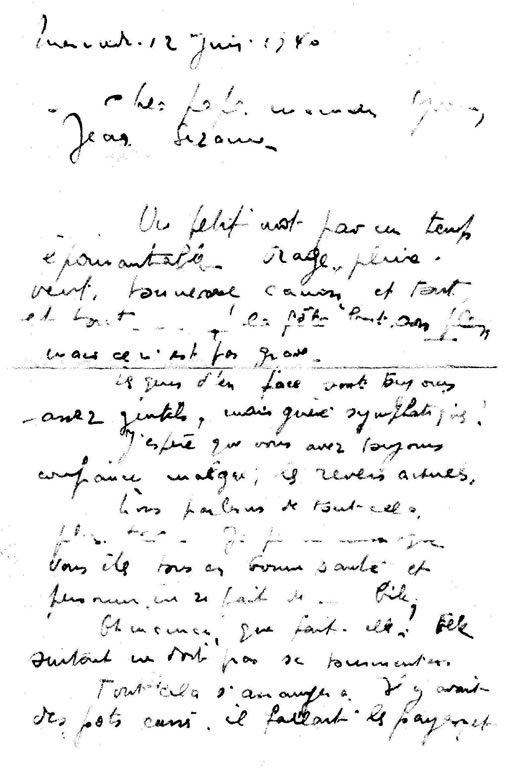 Mercredi 12 Juin 1940
Cher papa, maman
Jean Suzanne
Un petit mot par un temps
épouvantable orage, pluie.
vent, tonnerre canon et tout
et tout - - - - !
mais ce n'est pas grave.
Les gens d'en face sont toujours
assez gentils, mais guère sympathiques!
J'espère que vous avez toujours
confiance malgré les revers actuels,
Nous parlerons de tout cela,
plus
vous êtes tous en bonne santé et
personne ne se fait de bile,
que fait-elle? Elle
surtout ne doit pas se tourmenter.
Tout cela s'arrangera. Il y avait
des pots cassés, il fallait les payer, et